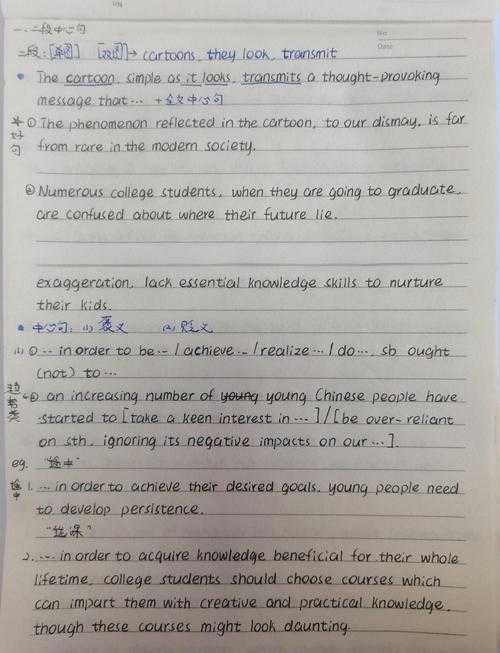 No
Date
一. 二段中心句
二段:[单图] [双图]→ cartoons, they look, transmit
• The cartoon, simple as it looks, transmits a thought-provoking
message that… + 全文中心句
① The phenomenon reflected in the cartoon, to our dismay, is far
from rare in the modern society.
好句
② Numerous college students, when they are going to graduate,
are confused about where their future lie.
exaggeration, lack essential knowledge skills to nurture
their kids.
• 中心句: (1) 褒义 (2) 贬义
(1) ① … in order to be … / achieve … / realize … / do …, sb ought
(not) to …
② an increasing number of young Chinese people have
started to [take a keen interest in …] / [be over-reliant
on sth, ignoring its negative impacts on our …].
eg. "途中"
途中 1. … in order to achieve their desired goals, young people need
to develop persistence.
"选课"
2. … in order to acquire knowledge beneficial for their whole
lifetime, college students should choose courses which
can impart them with creative and practical knowledge,
though these courses might look daunting.